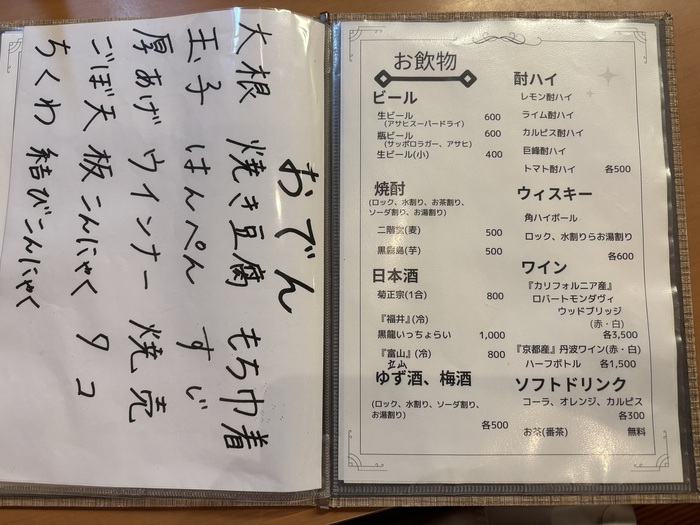 おでん
大根 焼き豆腐 もち巾着
玉子 はんぺん すじ
厚あげ ウインナー 焼売
ごぼ天 板こんにゃく タコ
ちくわ 結びこんにゃく
お飲物
ビール
生ビール 600
(アサヒスーパードライ)
瓶ビール 600
(サッポロラガー、アサヒ)
生ビール(小) 400
焼酎
(ロック、水割り、お茶割り、
ソーダ割り、お湯割り)
二階堂(麦) 500
黒霧島(芋) 500
日本酒
菊正宗(1合) 800
『福井』(冷)
黒龍いっちょらい 1,000
『富山』(冷) 800
立山
ゆず酒、梅酒
(ロック、水割り、ソーダ割り、
お湯割り)
各500
酎ハイ
レモン酎ハイ
ライム酎ハイ
カルピス酎ハイ
巨峰酎ハイ
トマト酎ハイ 各500
ウィスキー
角ハイボール
ロック、水割りらお湯割り
各600
ワイン
『カリフォルニア産』
ロバートモンダヴィ
ウッドブリッジ
(赤・白)
各3,500
『京都産』丹波ワイン(赤・白)
ハーフボトル 各1,500
ソフトドリンク
コーラ、オレンジ、カルピス
各300
お茶(番茶) 無料